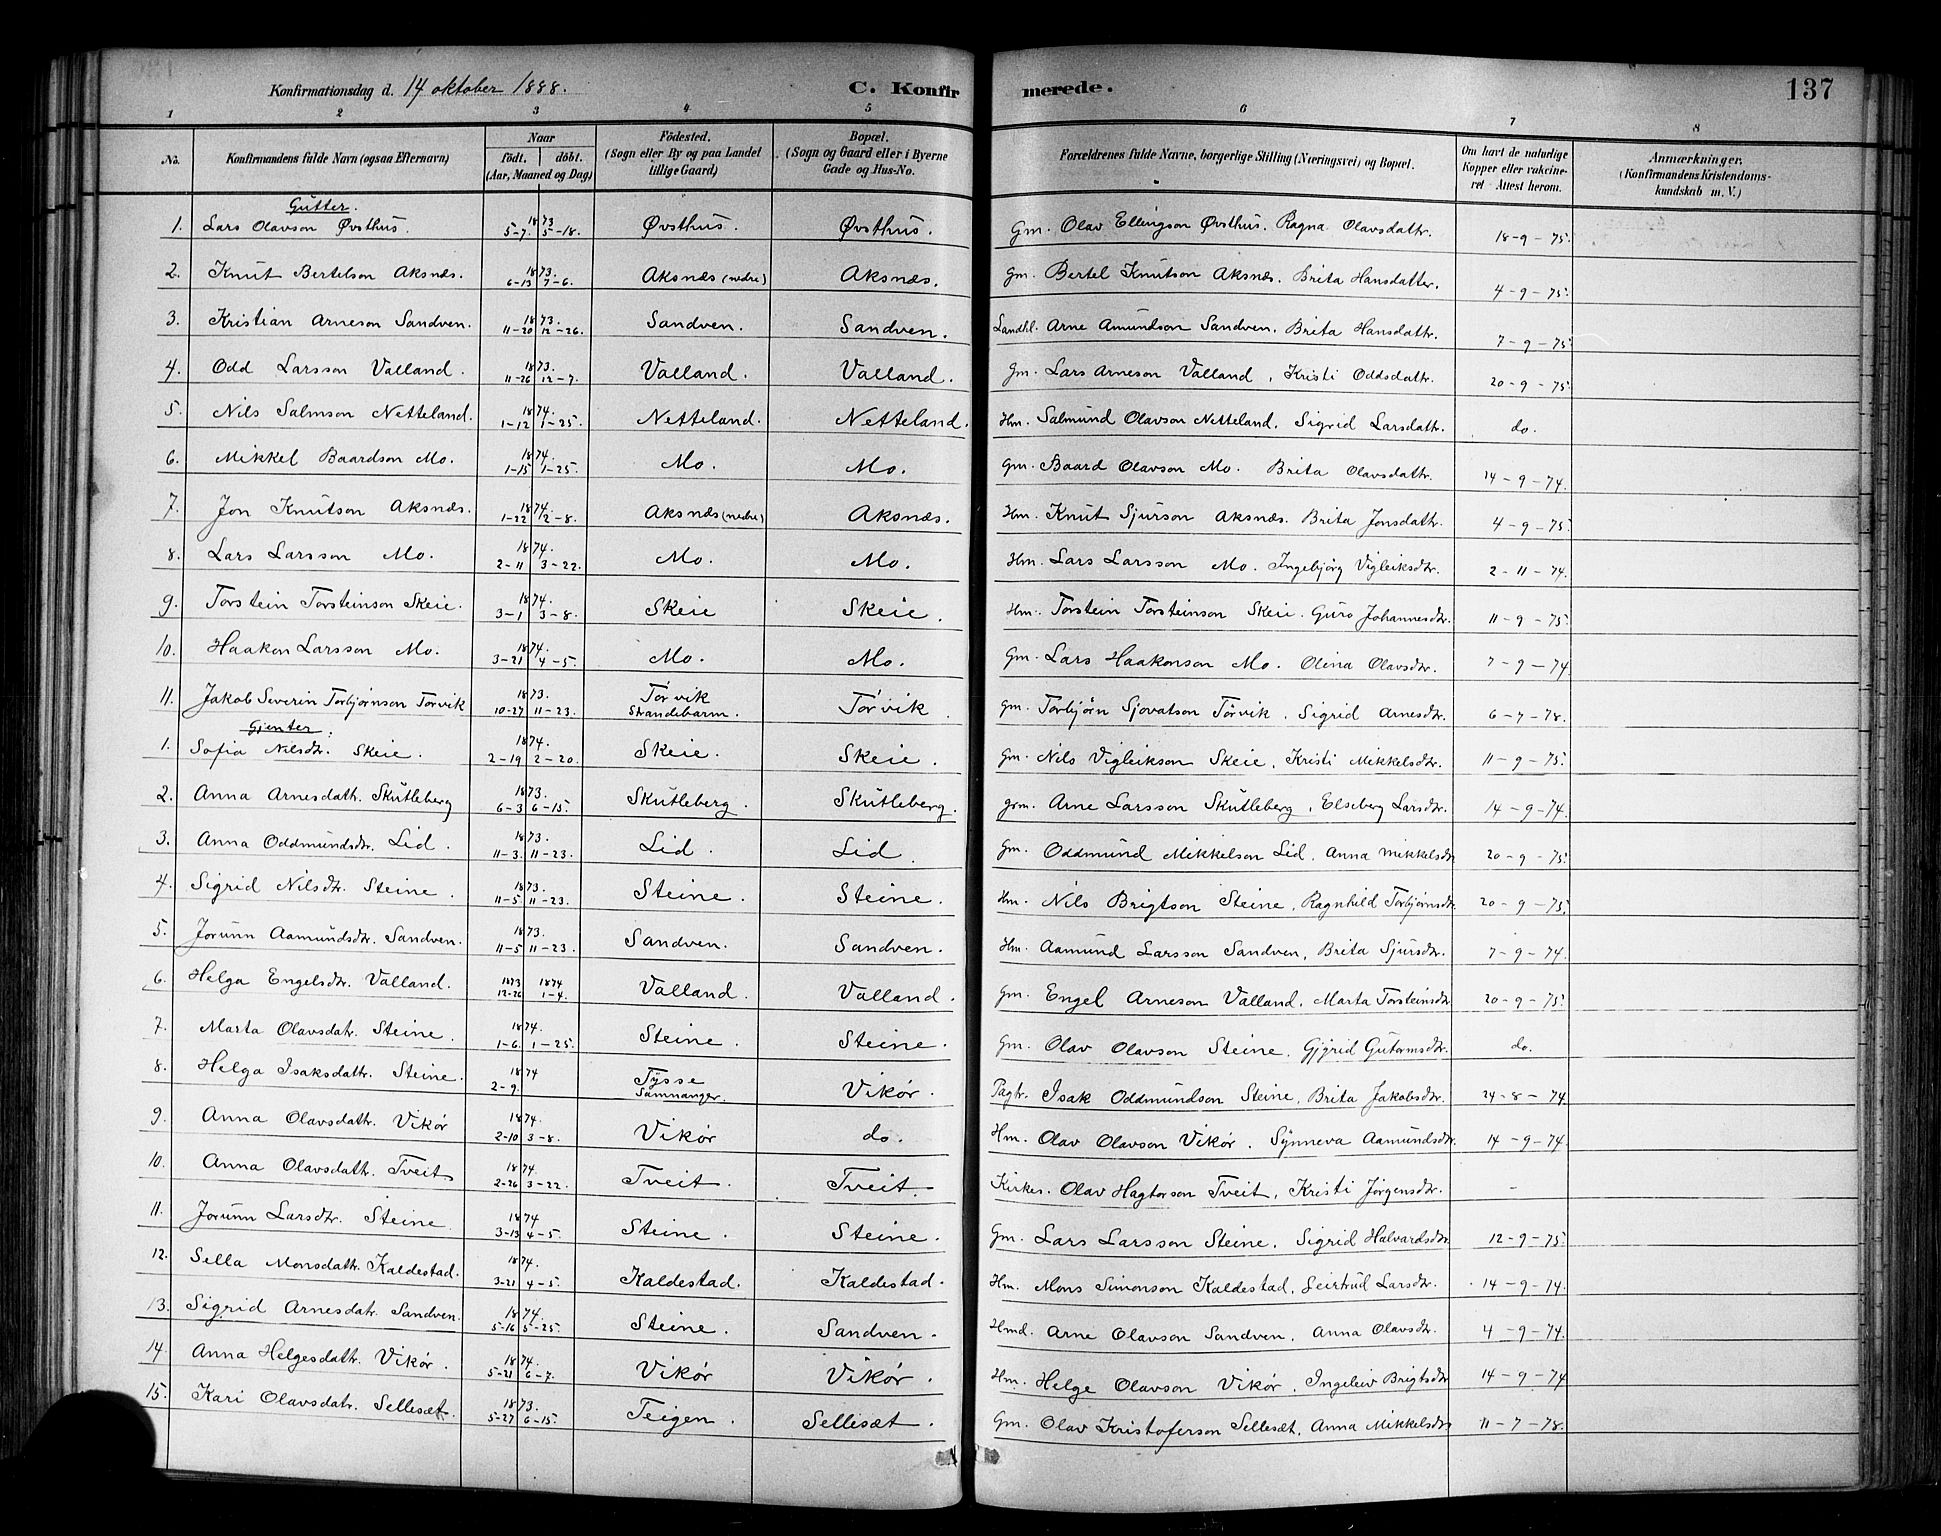 Konfirmationsdag d. 14 oktober 1888. C. Konfirmerede. 137
1 2 3 4 5 6 7 8
No. Konfirmandens fulde Navn (ogsaa Efternavn) Naar födt. döbt. (Aar, Maaned og Dag) Födested. (Sogn eller By og paa Landet tillige Gaard) Bopæl. (Sogn og Gaard eller i Byerne Gade og Hus-No. Forældrenes fulde Navne, borgerlige Stilling (Næringsvei) og Bopæl. Om havt de naturlige Kopper eller vakcineret - Attest herom. Anmærkninger. (Konfirmandens Kristendomskundskab m. V.)
Gutter.
1. Lars Olavson Øvsthus. 1873 5-7. 5-18. Øvsthus. Øvsthus. Gm. Olav Ellingson Øvsthus. Ragna Olavsdattr. 18-9-75.
2. Knut Bertelson Aksnæs. 1873. 6-13 7-6. Aksnæs (nedre) Aksnæs. Gm. Bertel Knutson Aksnæs. Brita Hansdatter. 4-9-75.
3. Kristian Arneson Sandven. 1873. 11-20 12-26. Sandven. Sandven. Landhl. Arne Amundson Sandven. Brita Hansdattr. 7-9-75
4. Odd Larsson Valland. 1873. 11-26 12-7. Valland. Valland. Gm. Lars Arneson Valland, Kristi Oddsdattr. 20-9-75.
5. Nils Salmson Netteland. 1874. 1-12 1-25. Netteland. Netteland. Hm. Salmund Olavson Netteland. Sigrid Larsdattr. do.
6. Mikkel Baardson Mo. 1874. 1-15 1-25. Mo. Mo. Gm. Baard Olavson Mo. Brita Olavsdattr. 14-9-74.
7. Jon Knutson Aksnæs. 1874. 1-22 2-8. Aksnæs (nedre) Aksnæs. Hm. Knut Sjurson Aksnæs. Brita Jonsdattr. 4-9-75.
8. Lars Larsson Mo. 1874. 2-11 3-22. Mo. Mo. Hm. Lars Larsson Mo. Ingebjörg Vigleiksdtr. 2-11-74.
9. Torstein Torsteinson Skeie. 1874. 3-1 3-8. Skeie Skeie. Hm. Torstein Torsteinson Skeie. Guro Johannesdtr. 11-9-75.
10. Haakon Larsson Mo. 1874. 3-21 4-5. Mo. Mo. Gm. Lars Haakonson Mo. Olina Olavsdtr. 7-9-74
11. Jakob Severin Torbjørnson Tørvik 1873. 10-27 11-23. Tørvik Strandebarm. Tørvik. Gm. Torbjørn Sjovatson Tørvik. Sigrid Arnesdtr. 6-7-78.
Gjenter.
1. Sofia Nilsdtr. Skeie. 1874. 2-19 2-20. Skeie. Skeie. Gm. Nils Vigleikson Skeie. Kristi Mikkelsdtr. 11-9-75.
2. Anna Arnesdatt. Skutleberg 1873. 6-3 6-15. Skutleberg. Skutleberg. grm. Arne Larsson Skutleberg, Elseberg Larsdtr. 14-9-74.
3. Anna Oddmundsdtr. Lid. 1873. 11-3. 11-23. Lid. Lid. Gm. Oddmund Mikkelson Lid. Anna Mikkelsdtr 20-9-75.
4. Sigrid Nilsdtr. Steine. 1873. 11-5 11-23. Steine. Steine. Hm. Nils Brigtson Steine, Ragnhild Torbjørnsdtr. 20-9-75.
5. Jorunn Aamundsdtr. Sandven. 1873. 11-5 11-23. Sandven. Sandven. Hm. Aamund Larsson Sandven, Brita Sjursdtr. 7-9-74.
6. Helga Engelsdtr. Valland. 1873 12-26 1874 1-4. Valland. Valland. Gm. Engel Arneson Valland. Marta Torsteinsdtr 20-9-75.
7. Marta Olavsdatr. Steine. 1874. 1-6. 1-25. Steine. Steine. Gm. Olav Olavson Steine. Gjyrid Gutormsdtr. do.
8. Helga Isaksdattr. Steine. 1874 2-9. Tysse Samnanger. Vikør. Pagtr. Isak Oddmundson Steine, Brita Jakobsdtr. 24-8-74
9. Anna Olavsdattr. Vikør 1874. 2-10 3-8. Vikør do. Hm. Olav Olavson Vikør. Synneva Aamundsdtr. 14-9-74.
10. Anna Olavsdattr. Tveit 1874 2-26 3-22. Tveit. Tveit. Kirkes. Olav Hagtorson Tveit, Kristi Jørgensdtr. -
11. Jorunn Larsdtr. Steine 1874 3-13 4-5. Steine. Steine. Gm. Lars Larsson Steine. Sigrid Halvardsdtr 12-9-75.
12. Sella Monsdattr. Kaldestad. 1874. 3-21 4-5. Kaldestad. Kaldestad. Hm. Mons Simonson Kaldestad, Geirtrud Larsdtr. 14-9-74.
13. Sigrid Arnesdatr. Sandven. 1874. 5-16 5-25. Steine. Sandven. Hmd. Arne Olavson Sandven. Anna Olavsdtr. 4-9-74.
14. Anna Helgesdattr. Vikør. 1874. 5-21 6-7. Vikør Vikør. Hm. Helge Olavson Vikør. Ingelev Brigtsdtr 14-9-74
15. Kari Olavsdatr. Sellesæt. 1873. 5-27 6-15. Teigen. Sellesæt. Gm. Olav Kristoferson Sellesæt, Anna Mikkelsdtr 11-7-78.